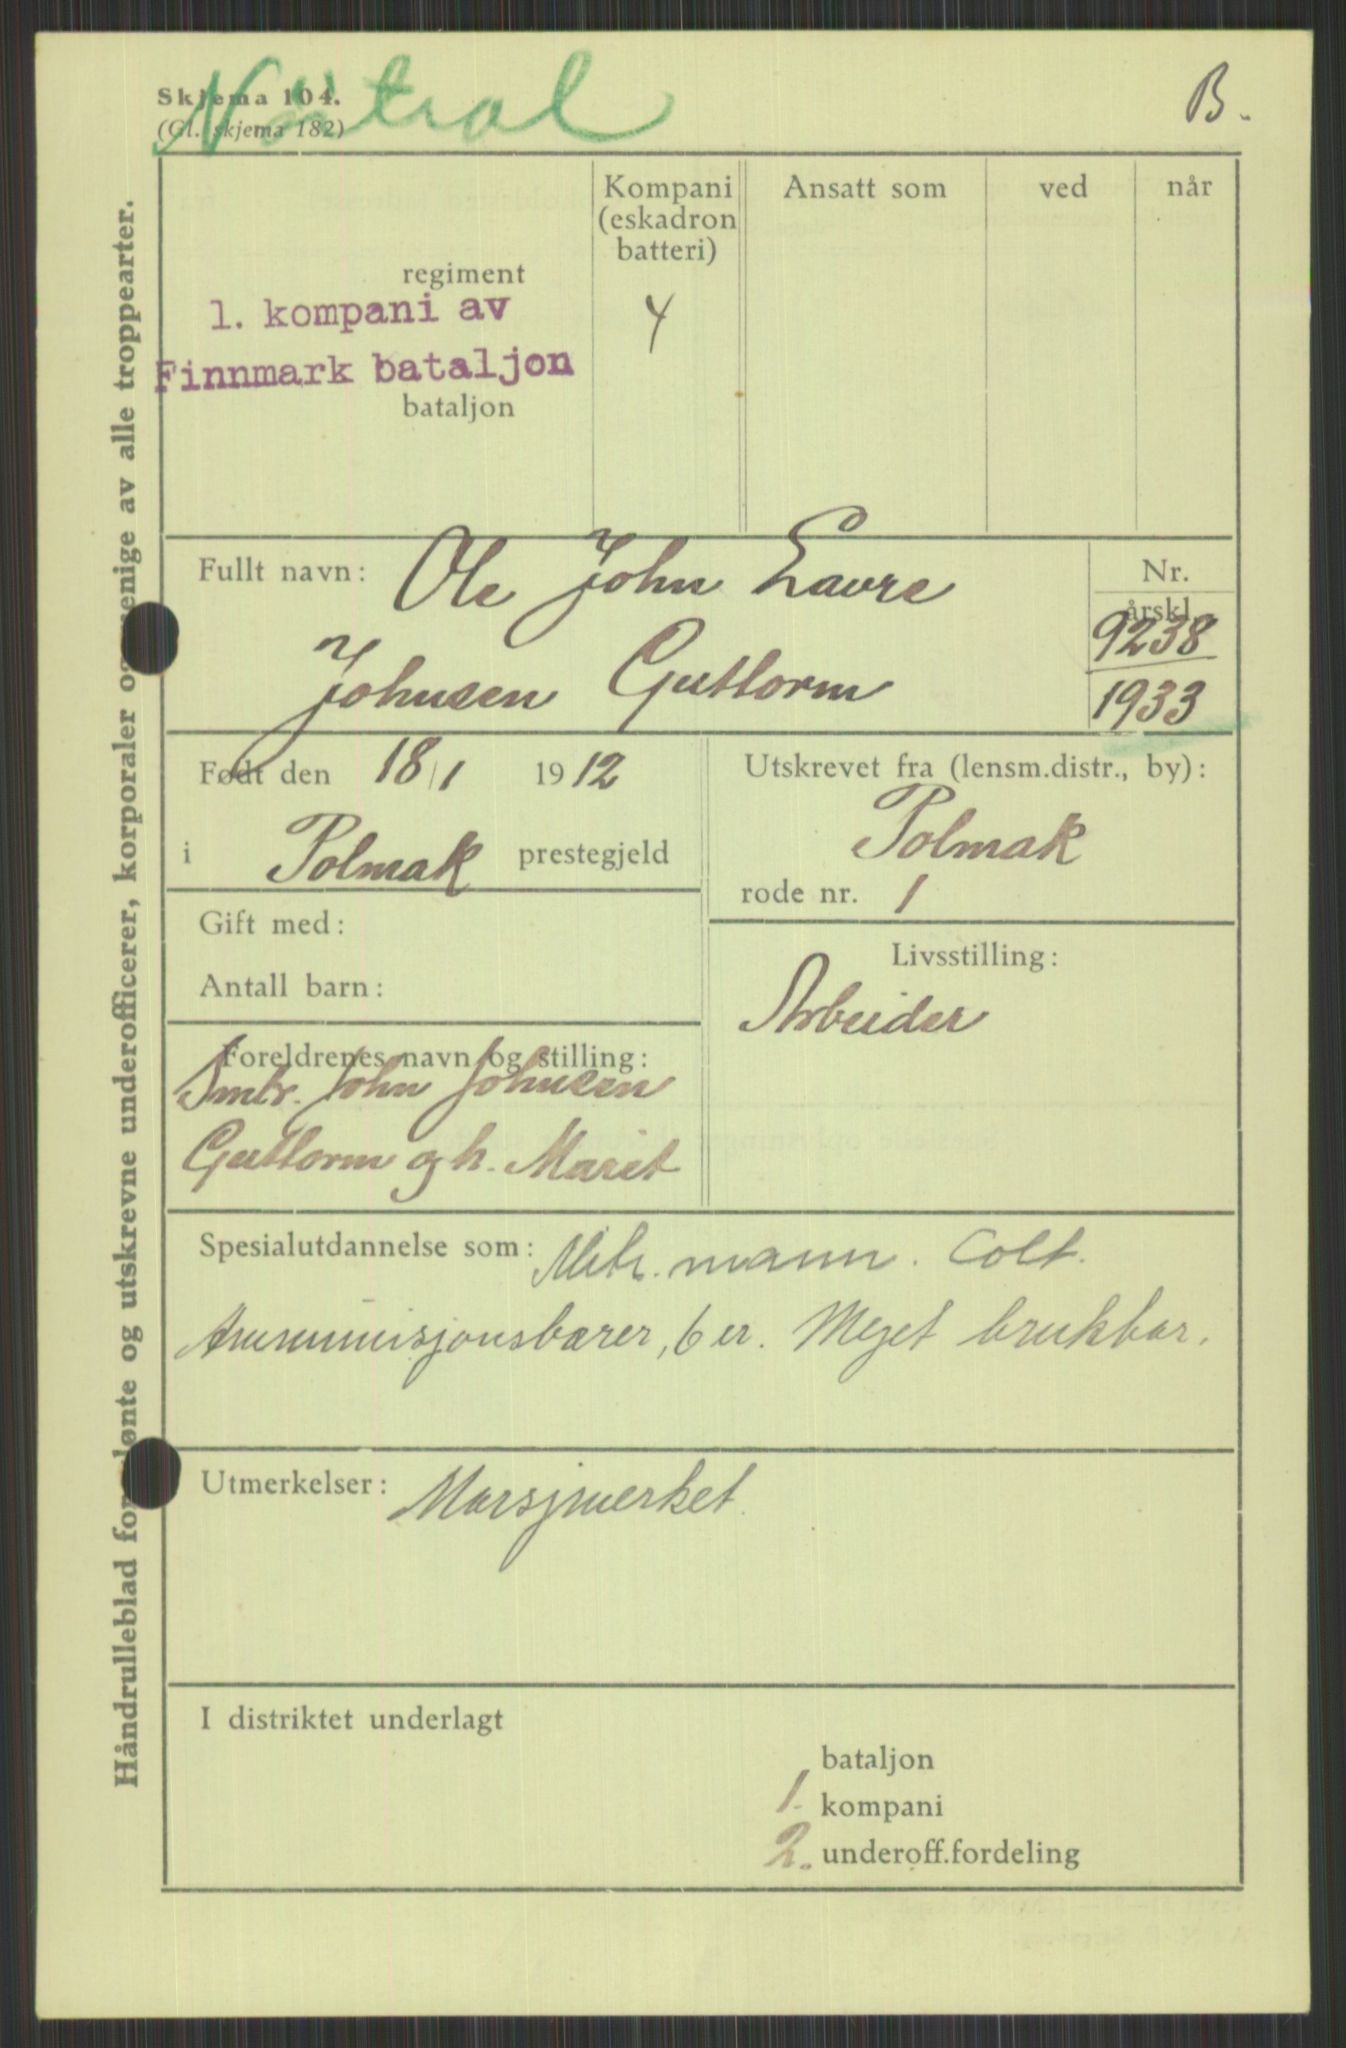 Nøitral
B.
Skjema 104.
(Gl. skjema 182)
Håndrulleblad for lønte og utskrevne underofficerer, korporaler og menige av alle troppearter.
Kompani
(eskadron
batteri)
Ansatt som
ved
når
regiment
1. kompani av
4
Finnmark bataljon
bataljon
Fullt navn: Ole John Lavre
Johnsen Guttorm
Nr.
årskl.
9238
1933
Født den 18/1 1912
i Polmak prestegjeld
Utskrevet fra (lensm.distr., by):
Polmak
rode nr. 1
Gift med:
Antall barn:
Livsstilling:
Arbeider
Foreldrenes navn og stilling:
Smbr. John Johnsen
Guttorm og h. Marit
Spesialutdannelse som: Mitr. mann. Colt.
Ammunisjonsbærer, 6 er. Meget brukbar.
Utmerkelser: Marsjmerket.
I distriktet underlagt
bataljon
1. kompani
2. underoff.fordeling